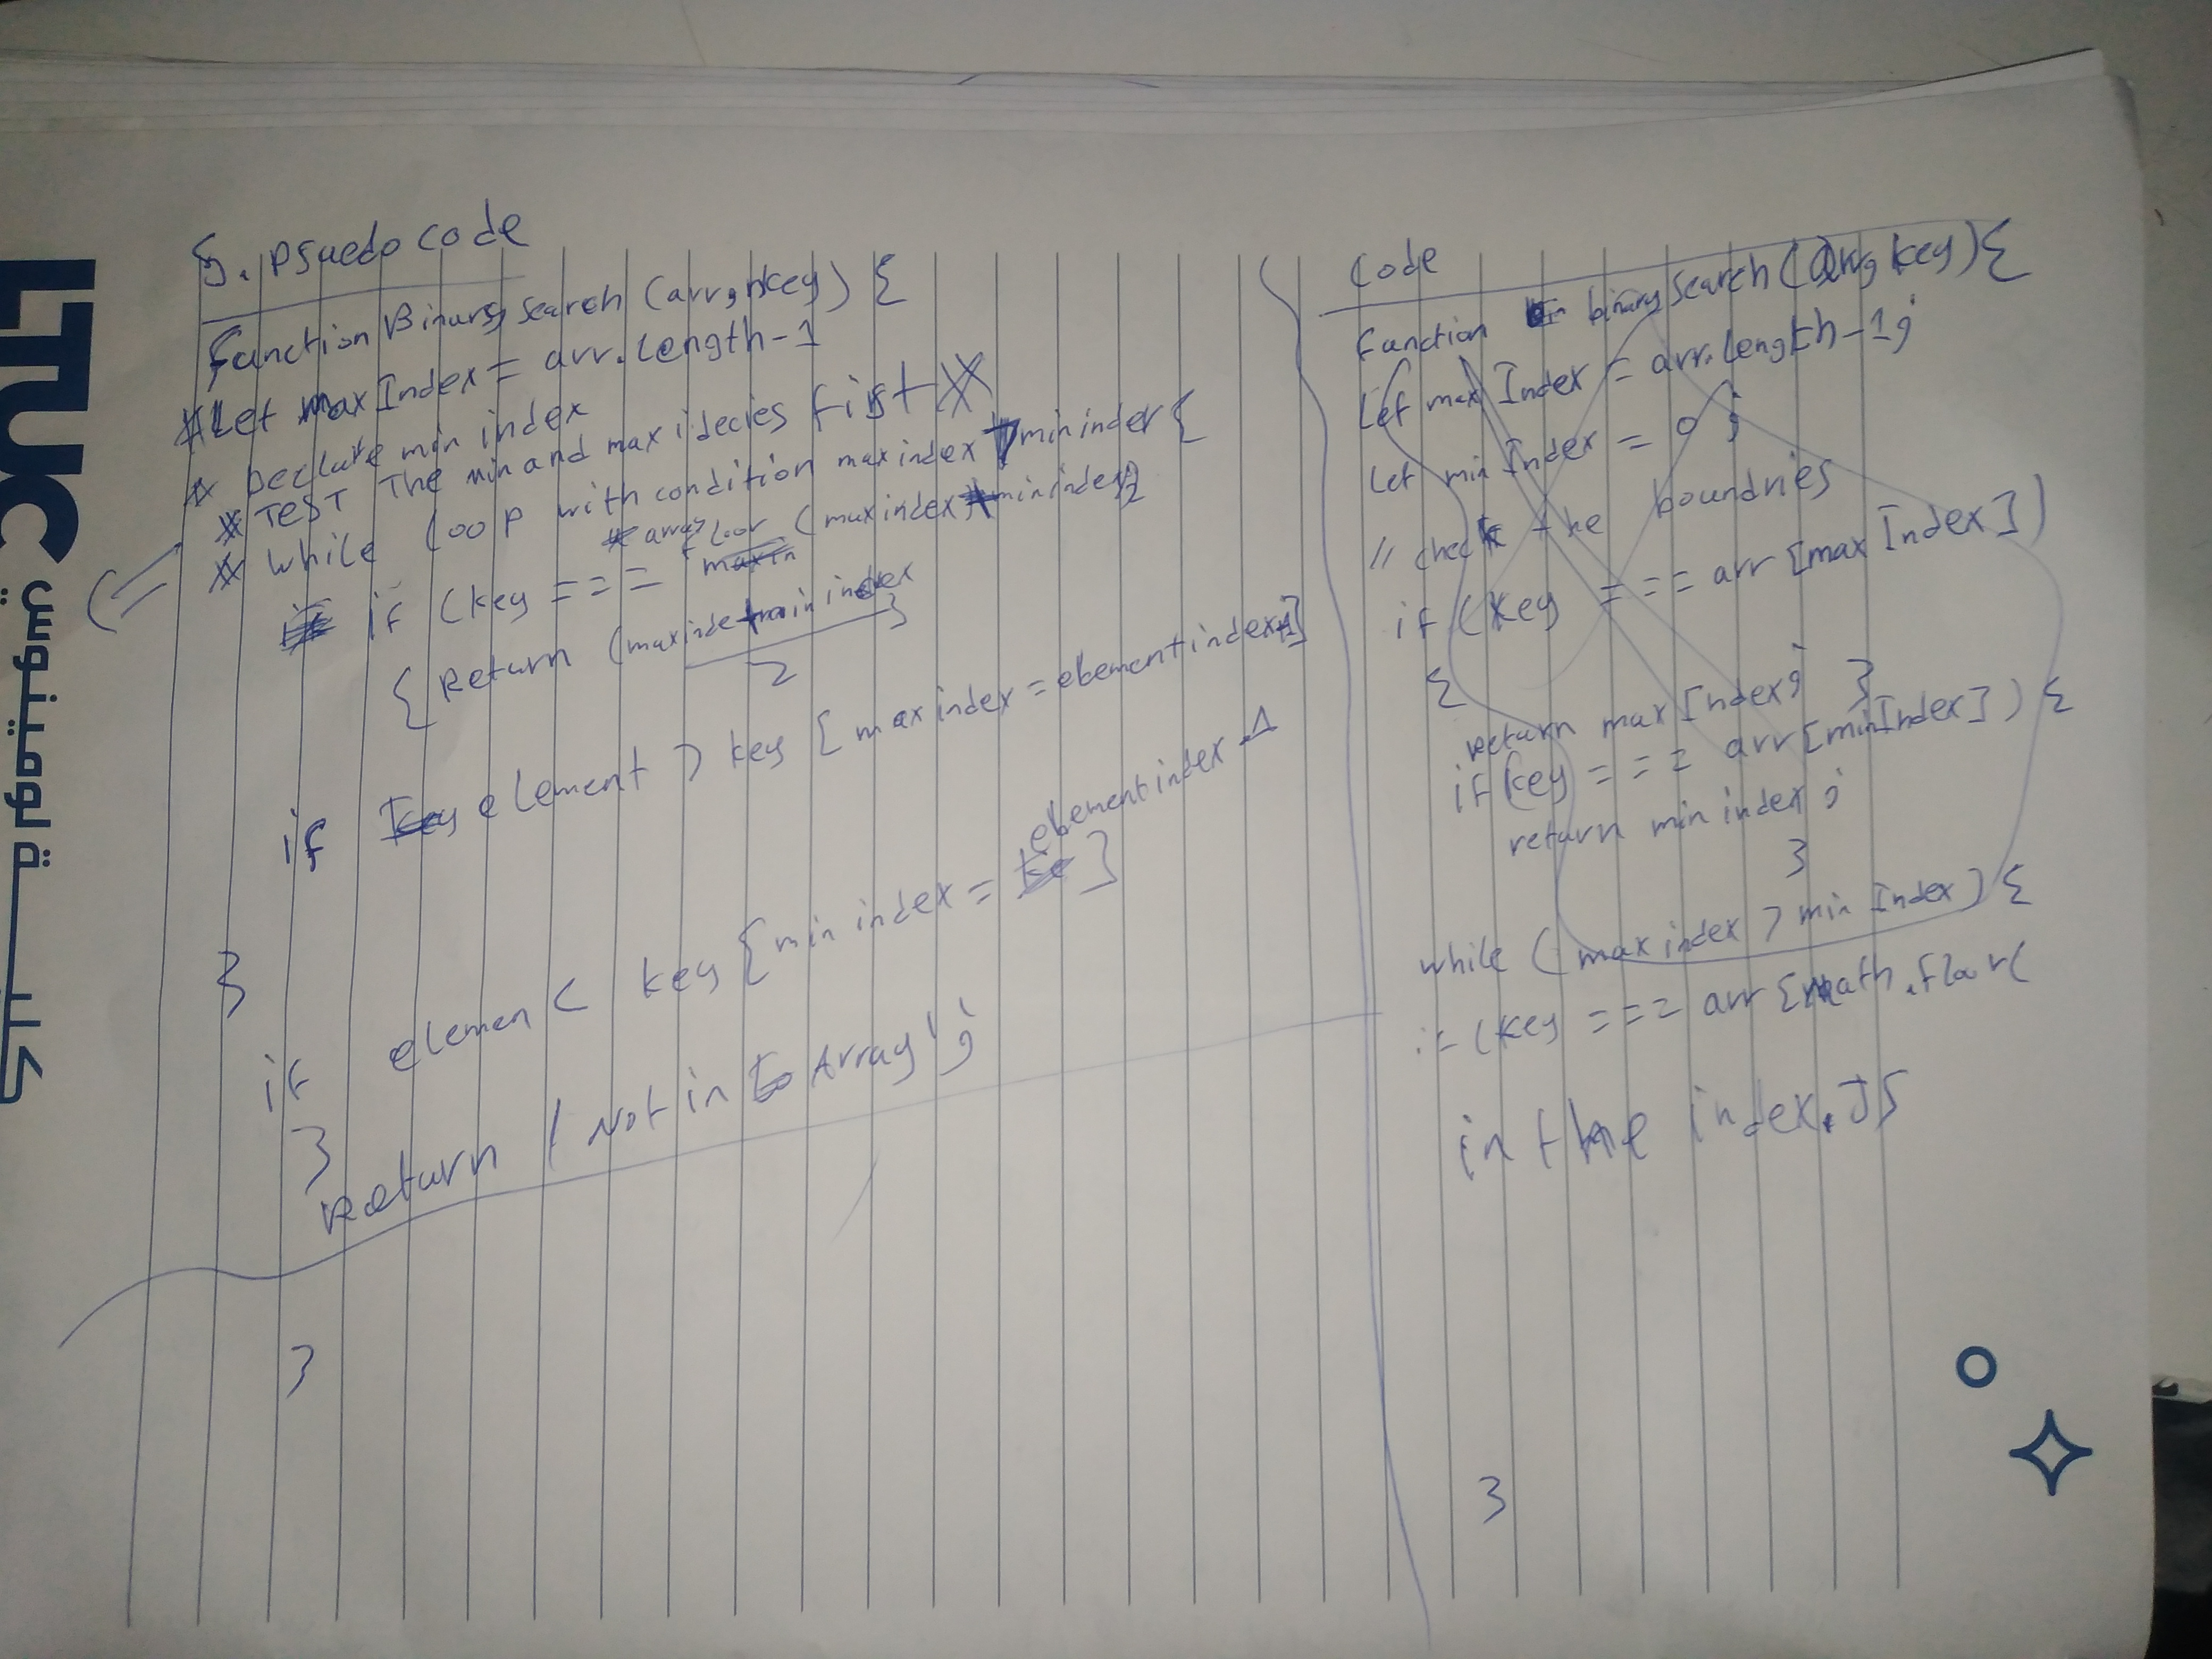 5. Psuedo code
Function Binary Search (arr, key) {
Let max Index = arr.length-1
* Declare min index
* TEST The min and max idecies first
* while loop with condition max index > min index {
if (key === array floor (max index + min index)/2
{ Return (max inde + min index
2
}
if element > key [ max index = element index+1]
}
if elemen < key { min index = element index -1 ]
}
Return ' Not in Array ' ;
}
Code
Function binary Search (arr, key) {
Let max Index = arr.length-1;
Let min Index = 0 ;
// check the boundries
if (key === arr [max Index])
{
return max Index; }
if (key === arr [min Index]) {
return min index ;
}
while ( max index > min Index ) {
if (key === arr [math.floor(
in the index.JS
}
LTUC